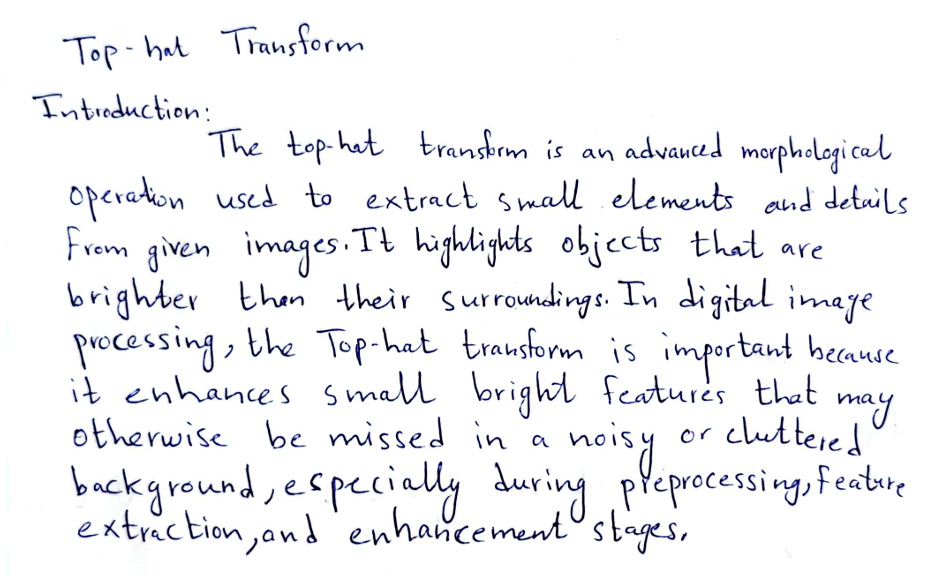 Top-hat Transform
Introduction:
The top-hat transform is an advanced morphological
operation used to extract small elements and details
from given images. It highlights objects that are
brighter than their surroundings. In digital image
processing, the Top-hat transform is important because
it enhances small bright features that may
otherwise be missed in a noisy or cluttered
background, especially during preprocessing, feature
extraction, and enhancement stages.